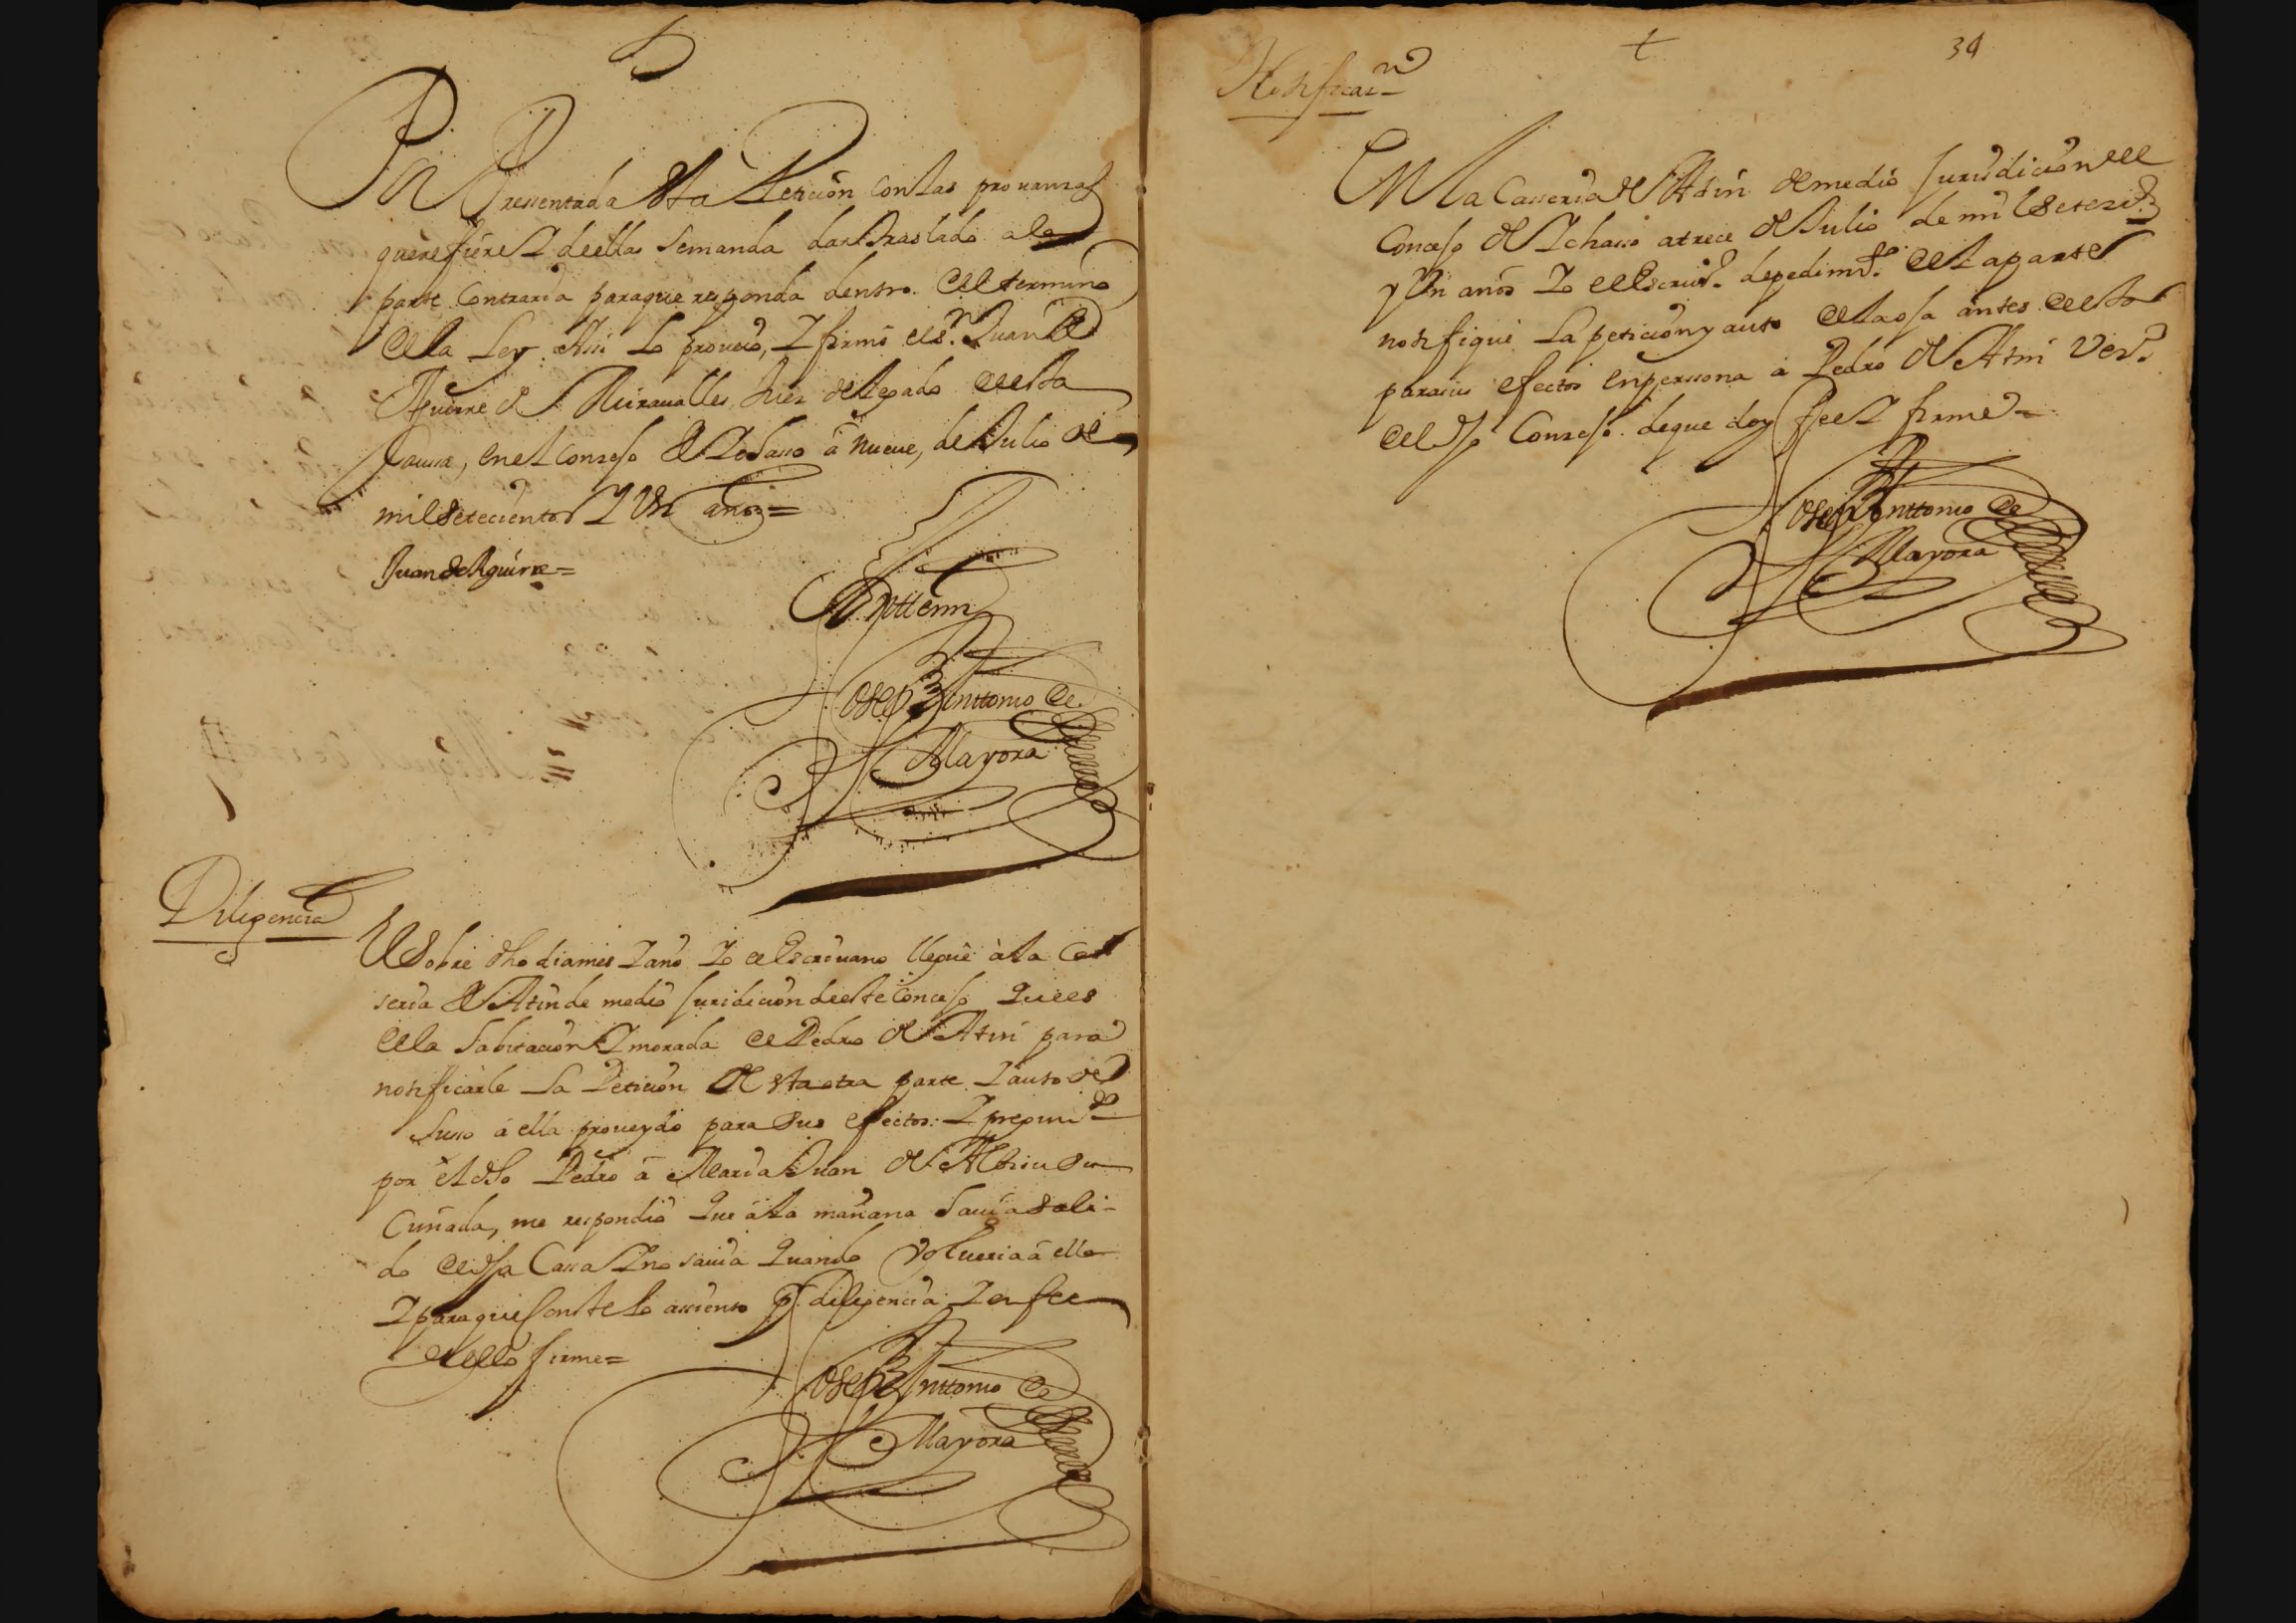 Por Pressentada esta Peticion con las prouansas
que refiere, I de ellas se manda dar traslado a la
parte Contraria paraque responda dentro del termino
de la Ley. Assi Lo proueió, I firmó el S.r Juan de
Aguirre de Miraualles Juez delegado de esta
Caussa, en el Consejo de Ichasso á nueue, de Julio de
mil setecientos I Un años =
Juan de Aguirre =
Antte mi
Joseph Anttonio de
Mayora
Diligencia
E Sobre dho dia mes I año Io el Escriuano llegué à la Cas
seria de Atin de medio Juridicion de este Concejo que es
de la habitacion I morada de Pedro de Atin para
notificarle la Peticion de esta otra parte I auto de
suso á ella proueydo para sus efectos: I pregun.do
por el dho Pedro á Maria Juan de Albisu su
Cuñada, me respondió que á la mañana hauia sali-
do de dha Cassa I no sauia quando volueria á ella
I paraque Conste lo assiento p.r diligencia I en fee
de ello firme =
Joseph Anttonio de
Mayora
34
Notificaz.n
En la Casseria de Atin de medio Juridicion del
Concejo de Ichasso a trece de Julio de mil setez.s
y Un años Io el Escriu.o de pedim.to de la parte
notifiqué la peticion y auto de la oja antes de esta
para sus efectos en perssona á Pedro de Atin Vez.o
del dho Consejo de que doy fee I firme =
Joseph Anttonio de
Mayora